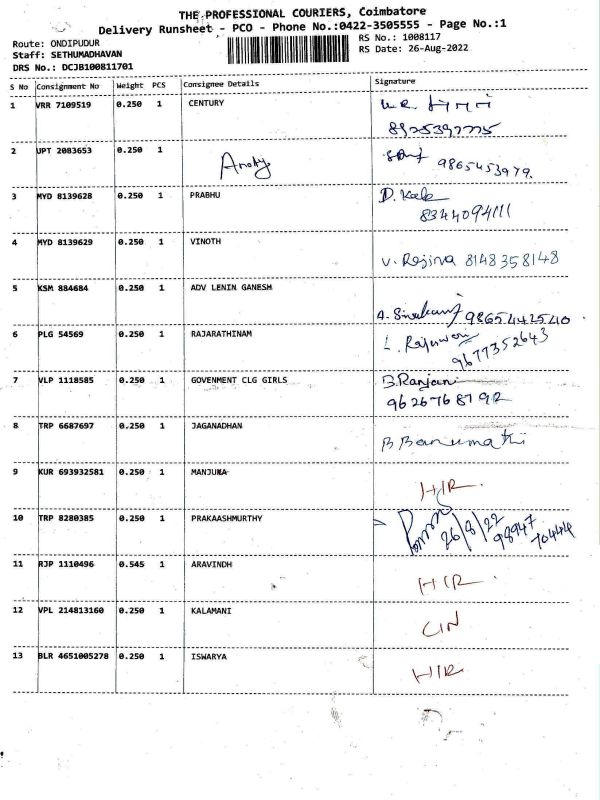 THE PROFESSIONAL COURIERS, Coimbatore
Delivery Runsheet - PCO - Phone No.:0422-3505555 - Page No.:1
Route: ONDIPUDUR
RS No.: 1008117
Staff: SETHUMADHAVAN
RS Date: 26-Aug-2022
DRS No.: DCJB100811701
S No Consignment No Weight PCS Consignee Details Signature
1 VRR 7109519 0.250 1 CENTURY
8925397775
2 UPT 2083653 0.250 1 9865453979.
3 MYD 8139628 0.250 1 PRABHU D. Kala
8344094111
4 MYD 8139629 0.250 1 VINOTH V. Rejina 8148358148
5 KSM 884684 0.250 1 ADV LENIN GANESH
A. Sivakami 9865442540
6 PLG 54569 0.250 1 RAJARATHINAM L. Rajeswari
9677352643
7 VLP 1118585 0.250 1 GOVENMENT CLG GIRLS B.Ranjani
9626768792
8 TRP 6687697 0.250 1 JAGANADHAN B Banumathi
9 KUR 693932581 0.250 1 MANJUKA HIR.
10 TRP 8280385 0.250 1 PRAKAASHMURTHY 26/8/22
98947
70444
11 RJP 1110496 0.545 1 ARAVINDH HIR.
12 VPL 214813160 0.250 1 KALAMANI CIN
13 BLR 4651005278 0.250 1 ISWARYA HIR